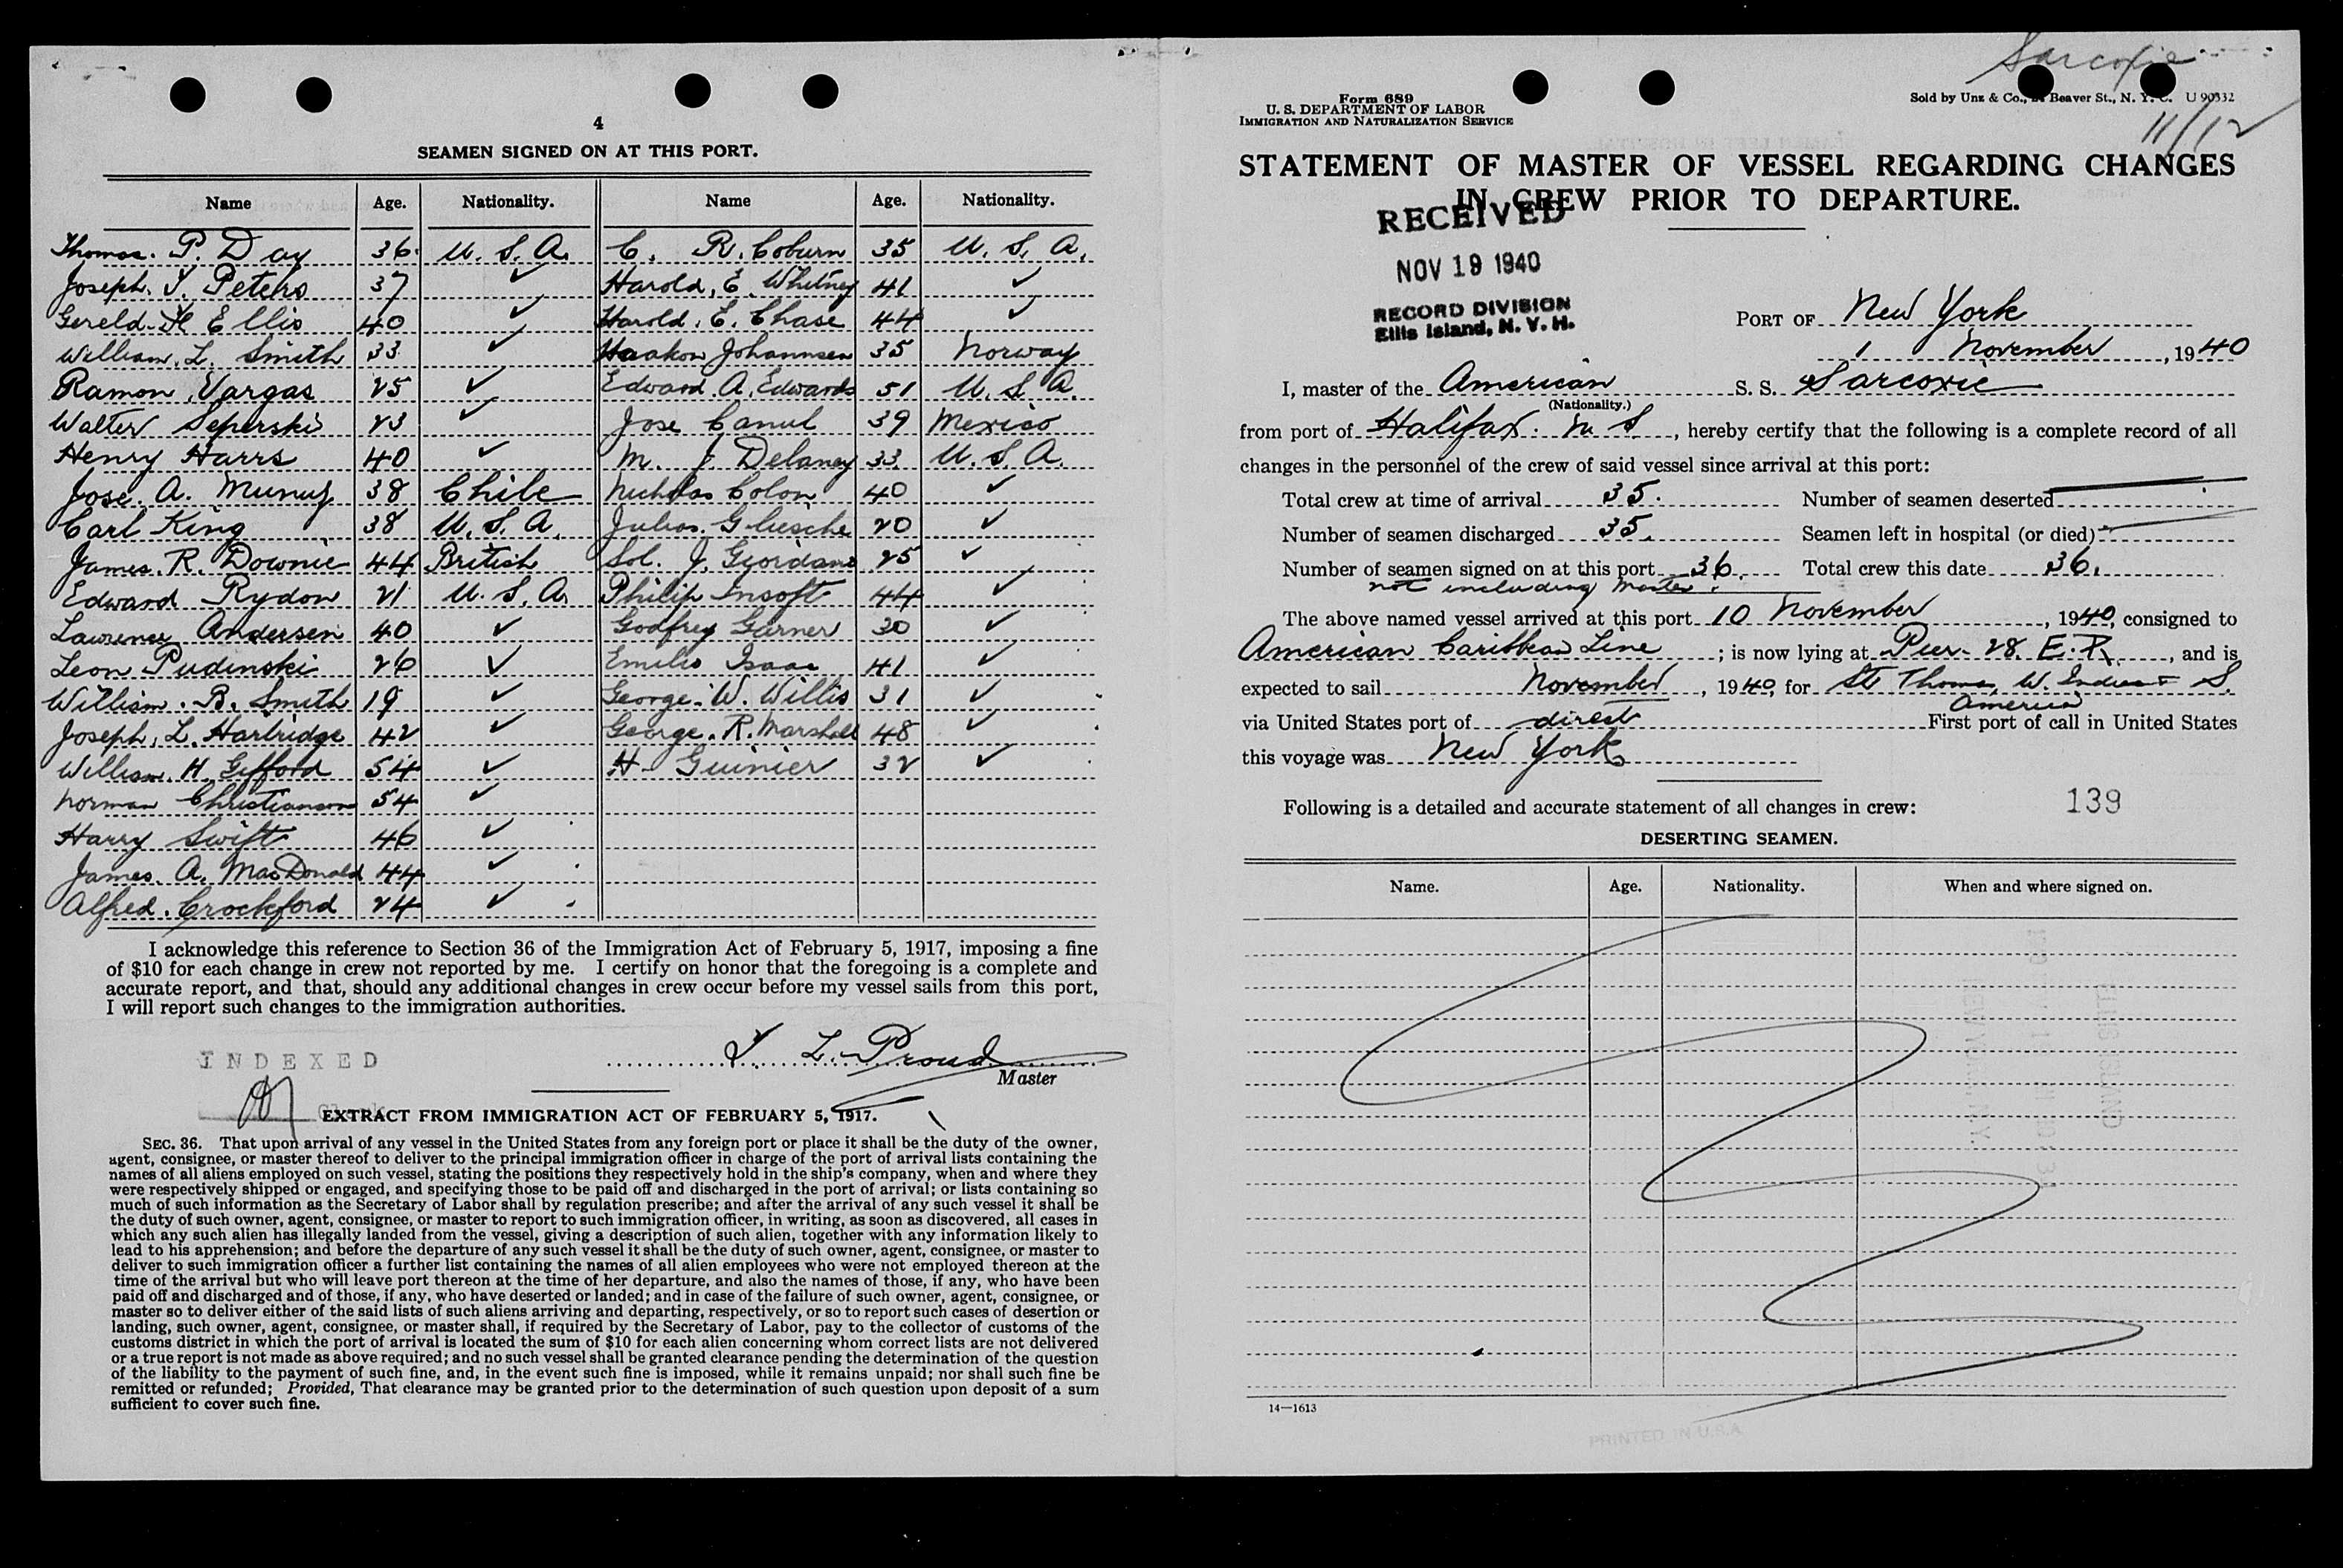 4
SEAMEN SIGNED ON AT THIS PORT.
Name Age. Nationality. Name Age. Nationality.
Thomas. P. Day 36 U. S. A. C. R. Coburn 35 U. S. A.
Joseph. Peters 37 ✓ Harold. E. Whitney 41 ✓
Gereld. H Ellis 40 ✓ Harold. E. Chase 44 ✓
William. L. Smith 33 ✓ Haakon Johannsen 35 Norway
Ramon Vargas 25 ✓ Edward. A. Edwards 51 U. S. A.
Walter Seperski 23 ✓ Jose Canul 39 Mexico
Henry Harrs 40 ✓ M. J Delaney 33 U. S. A.
Jose. A. 38 Chile Nicholas Colon 40 ✓
Carl King 38 U. S. A. Julius. Gliesche 20 ✓
James. R. Downie 44 British Sol. J. Giordano 25 ✓
Edward Rydon 21 U. S. A. Philip Insoft 44 ✓
Lawrence Andersen 40 ✓ Godfrey Garner 30 ✓
Leon Pudinski 26 ✓ Emilio Isaac 41 ✓
William. B. Smith 19 ✓ George. W. Willis 31 ✓
Joseph. L. Hartridge 42 ✓ George. R. Marshall 48 ✓
William. H. Gifford 54 ✓ H. Guinier 32 ✓
Norman Christianson 54 ✓
Harry Swift 46 ✓
James. A. MacDonald 44 ✓
Alfred. Crockford 24 ✓
I acknowledge this reference to Section 36 of the Immigration Act of February 5, 1917, imposing a fine
of $10 for each change in crew not reported by me. I certify on honor that the foregoing is a complete and
accurate report, and that, should any additional changes in crew occur before my vessel sails from this port,
I will report such changes to the immigration authorities.
INDEXED
L. Proud
Master
Clerk
EXTRACT FROM IMMIGRATION ACT OF FEBRUARY 5, 1917.
SEC. 36. That upon arrival of any vessel in the United States from any foreign port or place it shall be the duty of the owner,
agent, consignee, or master thereof to deliver to the principal immigration officer in charge of the port of arrival lists containing the
names of all aliens employed on such vessel, stating the positions they respectively hold in the ship's company, when and where they
were respectively shipped or engaged, and specifying those to be paid off and discharged in the port of arrival; or lists containing so
much of such information as the Secretary of Labor shall by regulation prescribe; and after the arrival of any such vessel it shall be
the duty of such owner, agent, consignee, or master to report to such immigration officer, in writing, as soon as discovered, all cases in
which any such alien has illegally landed from the vessel, giving a description of such alien, together with any information likely to
lead to his apprehension; and before the departure of any such vessel it shall be the duty of such owner, agent, consignee, or master to
deliver to such immigration officer a further list containing the names of all alien employees who were not employed thereon at the
time of the arrival but who will leave port thereon at the time of her departure, and also the names of those, if any, who have been
paid off and discharged and of those, if any, who have deserted or landed; and in case of the failure of such owner, agent, consignee, or
master so to deliver either of the said lists of such aliens arriving and departing, respectively, or so to report such cases of desertion or
landing, such owner, agent, consignee, or master shall, if required by the Secretary of Labor, pay to the collector of customs of the
customs district in which the port of arrival is located the sum of $10 for each alien concerning whom correct lists are not delivered
or a true report is not made as above required; and no such vessel shall be granted clearance pending the determination of the question
of the liability to the payment of such fine, and, in the event such fine is imposed, while it remains unpaid; nor shall such fine be
remitted or refunded; Provided, That clearance may be granted prior to the determination of such question upon deposit of a sum
sufficient to cover such fine.
Sarcoxie
Form 689
U. S. DEPARTMENT OF LABOR
IMMIGRATION AND NATURALIZATION SERVICE
Sold by Unz & Co., Beaver St., N. Y. C. U 90332
11/12
STATEMENT OF MASTER OF VESSEL REGARDING CHANGES
IN CREW PRIOR TO DEPARTURE.
RECEIVED
NOV 19 1940
RECORD DIVISION
Ellis Island, N. Y. H.
PORT OF New York
1 November, 1940
I, master of the American S. S. Sarcoxie
(Nationality.)
from port of Halifax. N S, hereby certify that the following is a complete record of all
changes in the personnel of the crew of said vessel since arrival at this port:
Total crew at time of arrival 35. Number of seamen deserted
Number of seamen discharged 35. Seamen left in hospital (or died)
Number of seamen signed on at this port 36. Total crew this date 36.
not including Master.
The above named vessel arrived at this port 10 November, 1940, consigned to
American Caribbean Line; is now lying at Pier 28. E. R., and is
expected to sail November, 1940, for St Thomas, W. Indies + S.
America
via United States port of direct First port of call in United States
this voyage was New York
Following is a detailed and accurate statement of all changes in crew: 139
DESERTING SEAMEN.
Name. Age. Nationality. When and where signed on.
14—1613
PRINTED IN U.S.A.